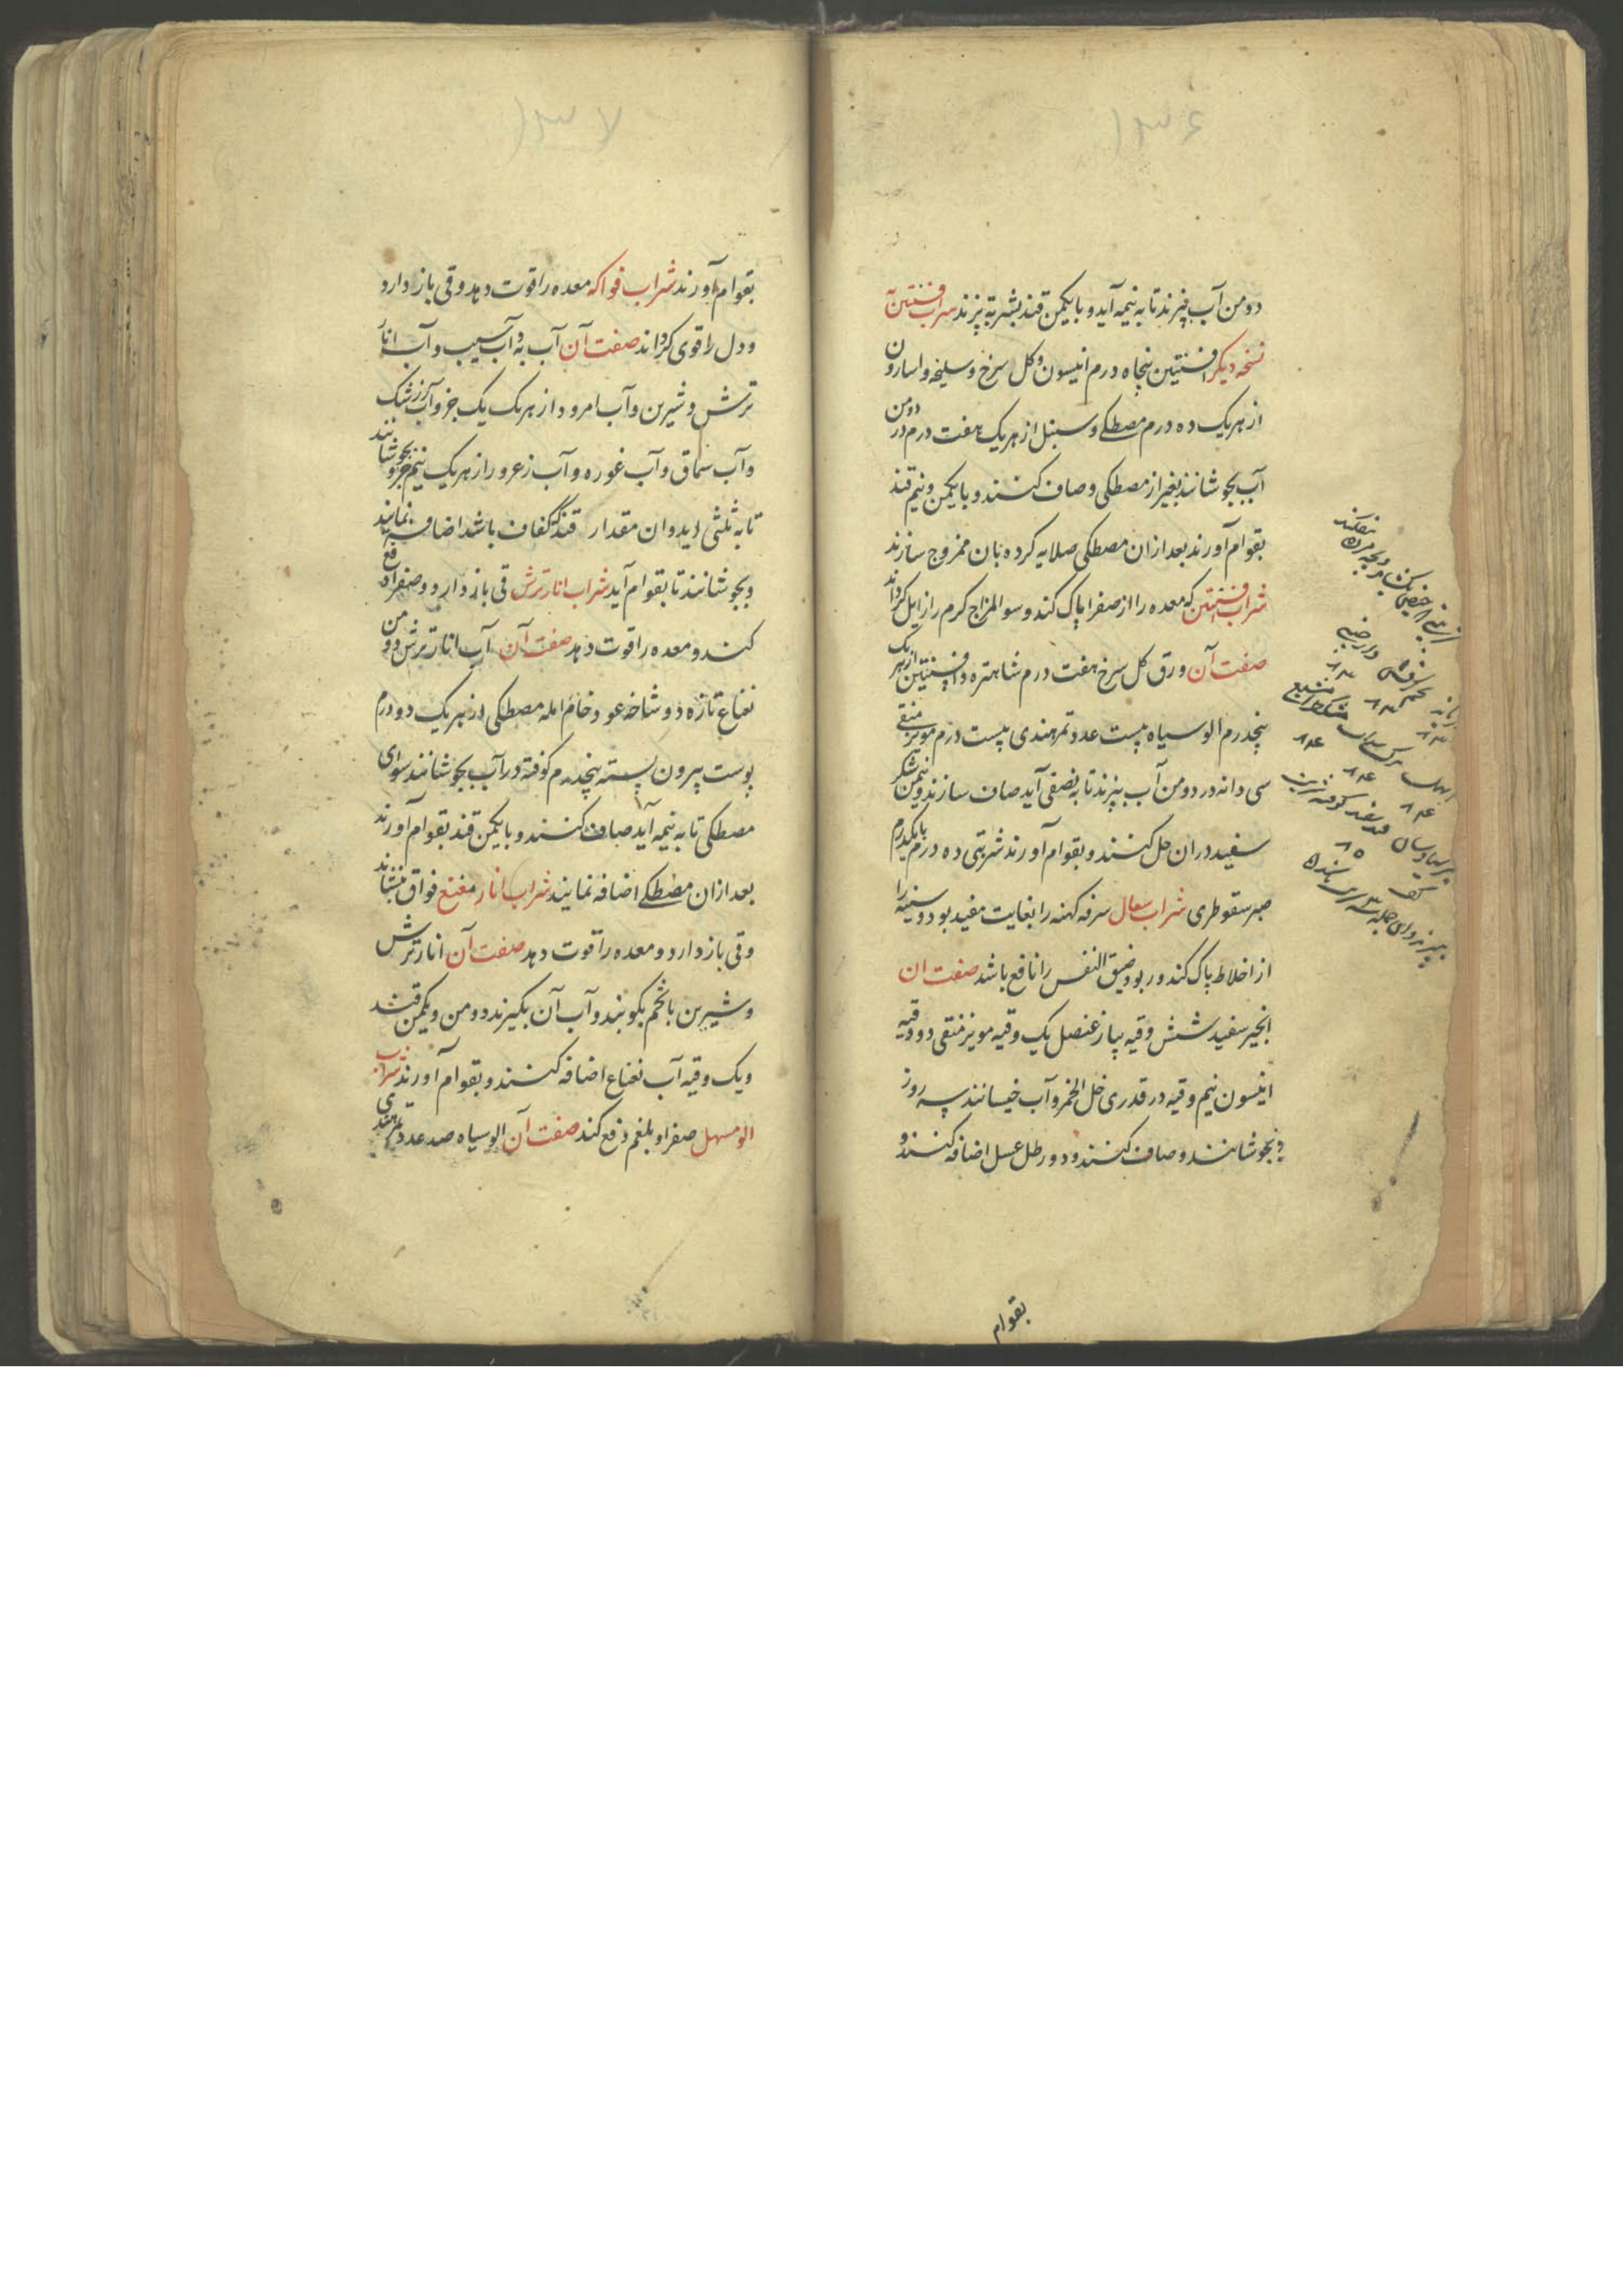 ۱۳۶
دومن آب بپزند تا به نیمه آید و با یکمن قند بشربة پزند شراب افسنتین
نسخه دیکر افسنتین پنجاه درم انیسون و کل سرخ و سلیخه و اسارون
از هریک ده درم مصطکے و سنبل از هریک هفت درم در دومن
آب بجوشانند بغیر از مصطکی و صاف کنند و با یکمن و نیم قند
بقوام آورند بعد ازان مصطکی صلایه کرده بان ممزوج سازند
شراب افسنتین که معده را از صفرا پاک کند و سوالمزاج کرم را زایل کرداند
صفت آن ورق کل سرخ هفت درم شاهتره و افسنتین از هر یک
پنجدرم الو سیاه بیست عدد تمرهندی بیست درم مویز منقی
سی دانه در دومن آب بپزند تا به نصفی آید صاف سازند و نیمن شکر
سفید دران حل کنند و بقوام آورند شربتی ده درم با یکدرم
صبر سقوطری شراب سعال سرفه کهنه را بغایت مفید بود و سینه را
از اخلاط پاک کند و ربو و ضیق النفس را نافع باشد صفت ان
انجیر سفید شش وقیه پیاز عنصل یک وقیه مویز منقی دو وقیه
انیسون نیم وقیه در قدری خل الخمر و آب خیسانند سه روز
و بجوشانند و صاف کنند و دو رطل عسل اضافه کنند و
بقوام
۱۳۷
بقوام آورند شراب فواکه معده را قوت دهد و قی باز دارد
و دل را قوی کرداند صفت آن آب به و آب سیب و آب انار
ترش و شیرین و آب امرود از هریک یک جزو آب زرشک
و آب سماق و آب غوره و آب زعرور از هریک نیم جزو بجوشانند
تا به ثلثی اید و ان مقدار قند که کفاف باشد اضافه نمایند
و بجوشانند تا بقوام آید شراب انار ترش قی باز دارد و صفرا دفع
کند و معده را قوت دهد صفت آن آب انار ترش دو من
نعناع تازه دو شاخه عود خام امله مصطکی از هریک دو درم
پوست بیرون پسته پنجدرم کوفته در آب بجوشانند سوای
مصطکی تا به نیمه آید صاف کنند و با یکمن قند بقوام آورند
بعد ازان مصطکے اضافه نمایند شراب انار منعنع فواق بنشاند
و قی باز دارد و معده را قوت دهد صفت آن انار ترش
و شیرین با تخم بکوبند و آب آن بکیرند دو من و یکمن قند
و یک وقیه آب نعناع اضافه کنند و بقوام آورند شراب
الو مسهل صفرا و بلغم دفع کند صفت آن الو سیاه صد عدد تمرهندی